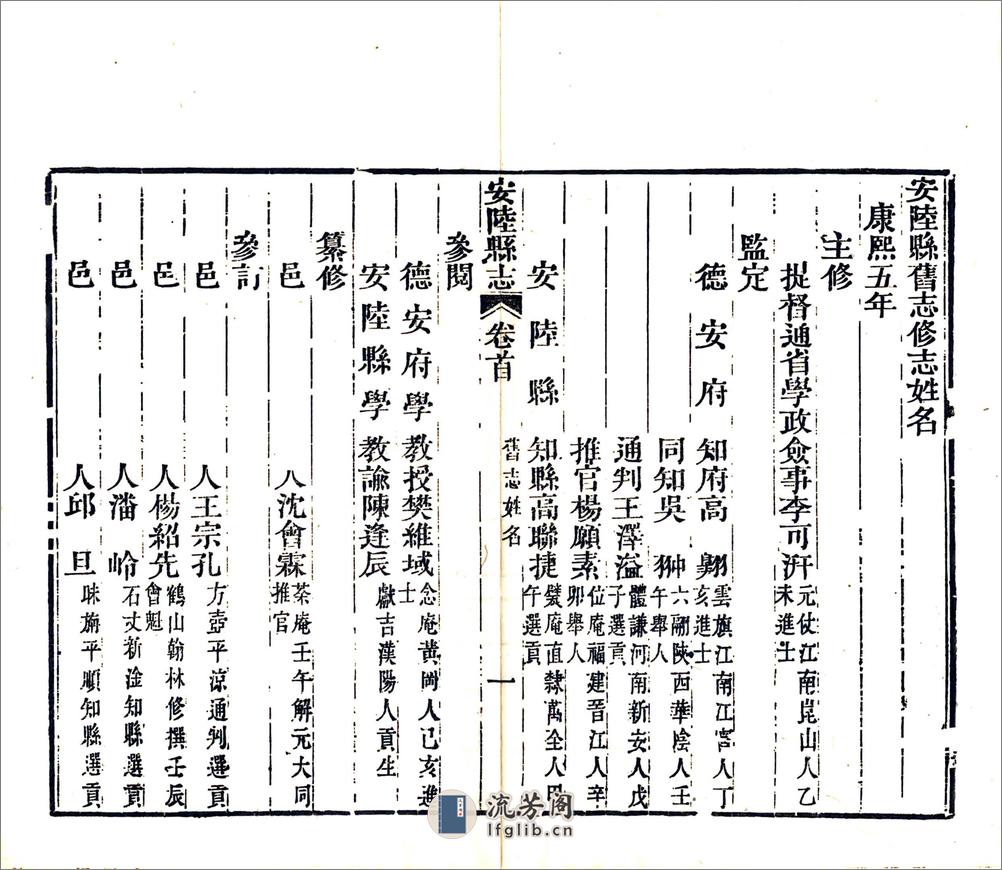 安陸縣舊志修志姓名
康熙五年
主修
提督通省學政僉事李可汧元仗江南崑山人乙未進士
監定
德安府知府高翺雲旗江南江寧人丁亥進士
同知吳翀六翮陝西華陰人壬午舉人
通判王澤溢體謙河南新安人戊子選貢
推官楊願素位庵福建晉江人辛卯舉人
安陸縣知縣高聯捷襞庵直隸萬全人甲午選貢
安陸縣志 卷首 舊志姓名 一
參閱
德安府學教授樊維域念庵黃岡人己亥進士
安陸縣學教諭陳逢辰獻吉漢陽人貢生
纂修
邑人沈會霖茶庵壬午解元大同推官
參訂
邑人王宗孔方壺平涼通判選貢
邑人楊紹先鶴山翰林修撰壬辰會魁
邑人潘岭石丈新淦知縣選貢
邑人邱旦味旃平順知縣選貢
流芳阁
lfglib.cn